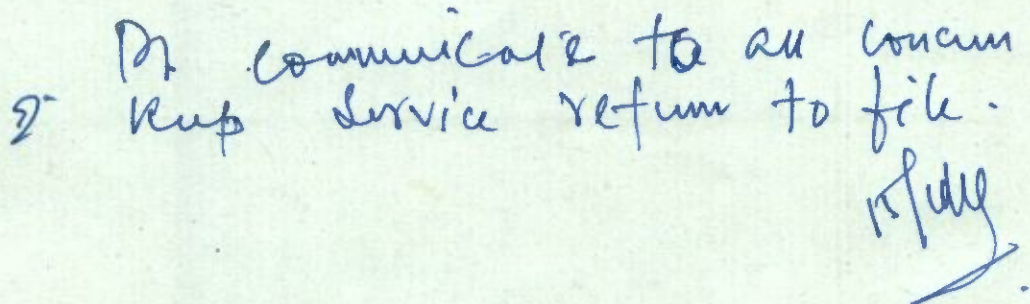 Pl communicate to all concern
& Keep Service return to file.